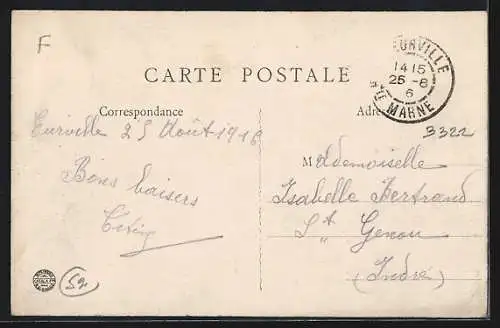 F
EURVILLE
14 15
25 - 8
6
Hte MARNE
CARTE POSTALE
Correspondance
Adre
3322
Eurville 25 Août 1916
Bons baisers
Mademoiselle
Isabelle Bertrand
St Genou
(Indre)
52